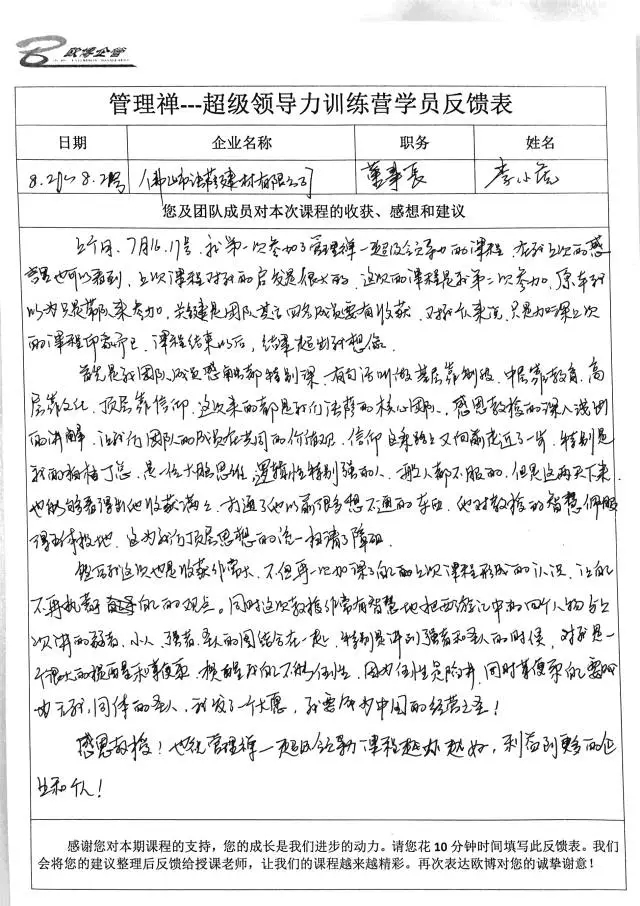 欧博企管
管理禅---超级领导力训练营学员反馈表
日期 企业名称 职务 姓名
8.20~8.21号 佛山市法莊建材有限公司 董事長 李小
您及团队成员对本次课程的收获、感想和建议
上个月,7月16.17号,我第一次参加了管理禅—超级领导力的课程,在我上次的感
也可以看到,上次课程对我的启发是很大的,这次的课程是我第二次参加,原本我
以为只是带队来参加,关键是团队其它四名成员要有收获,对我个人来说,只是加深上次
的课程印象而已,课程结束以后,结果超出我想像。
首先是我团队成员感触都特别深,有句话叫做基层靠制度,中层靠教育,高
层靠文化,顶层靠信仰,这次来的都是我们法的核心团队,感恩教授的深入浅出
的讲解,让我们团队的成员在共同的价值观,信仰这条路上又向前走近了一步,特别是
我的拍档丁总,是一位大脑思维,逻辑性特别强的人,一般人都不服的,但是这两天下来,
也能够看得出他收获满满,打通了他以前很多想不通的东西,他对教授的智慧佩服
得五体投地,这为我们顶层思想的统一扫清了障碍。
然后我这次也是收获非常大,不但再一次加深了自己的上次课程形成的认识,让自己
不再执著自己的观点。同时这次教授非常有智慧地把西游记中的四个人物与上
次讲的弱者、小人、强者、圣人的图结合在一起,特别是讲到强者和圣人的时候,对我是一
个很大的提醒和,提醒我自己不能任性,因为任性是陷井,同时自己要
无我,同体的圣人,我发了一个大愿,我要成为中国的经营之圣!
感恩教授!也祝管理禅—超级领导力课程越办越好,利益到更多的企
业和个人!
感谢您对本期课程的支持,您的成长是我们进步的动力。请您花 10 分钟时间填写此反馈表。我们
会将您的建议整理后反馈给授课老师,让我们的课程越来越精彩。再次表达欧博对您的诚挚谢意!